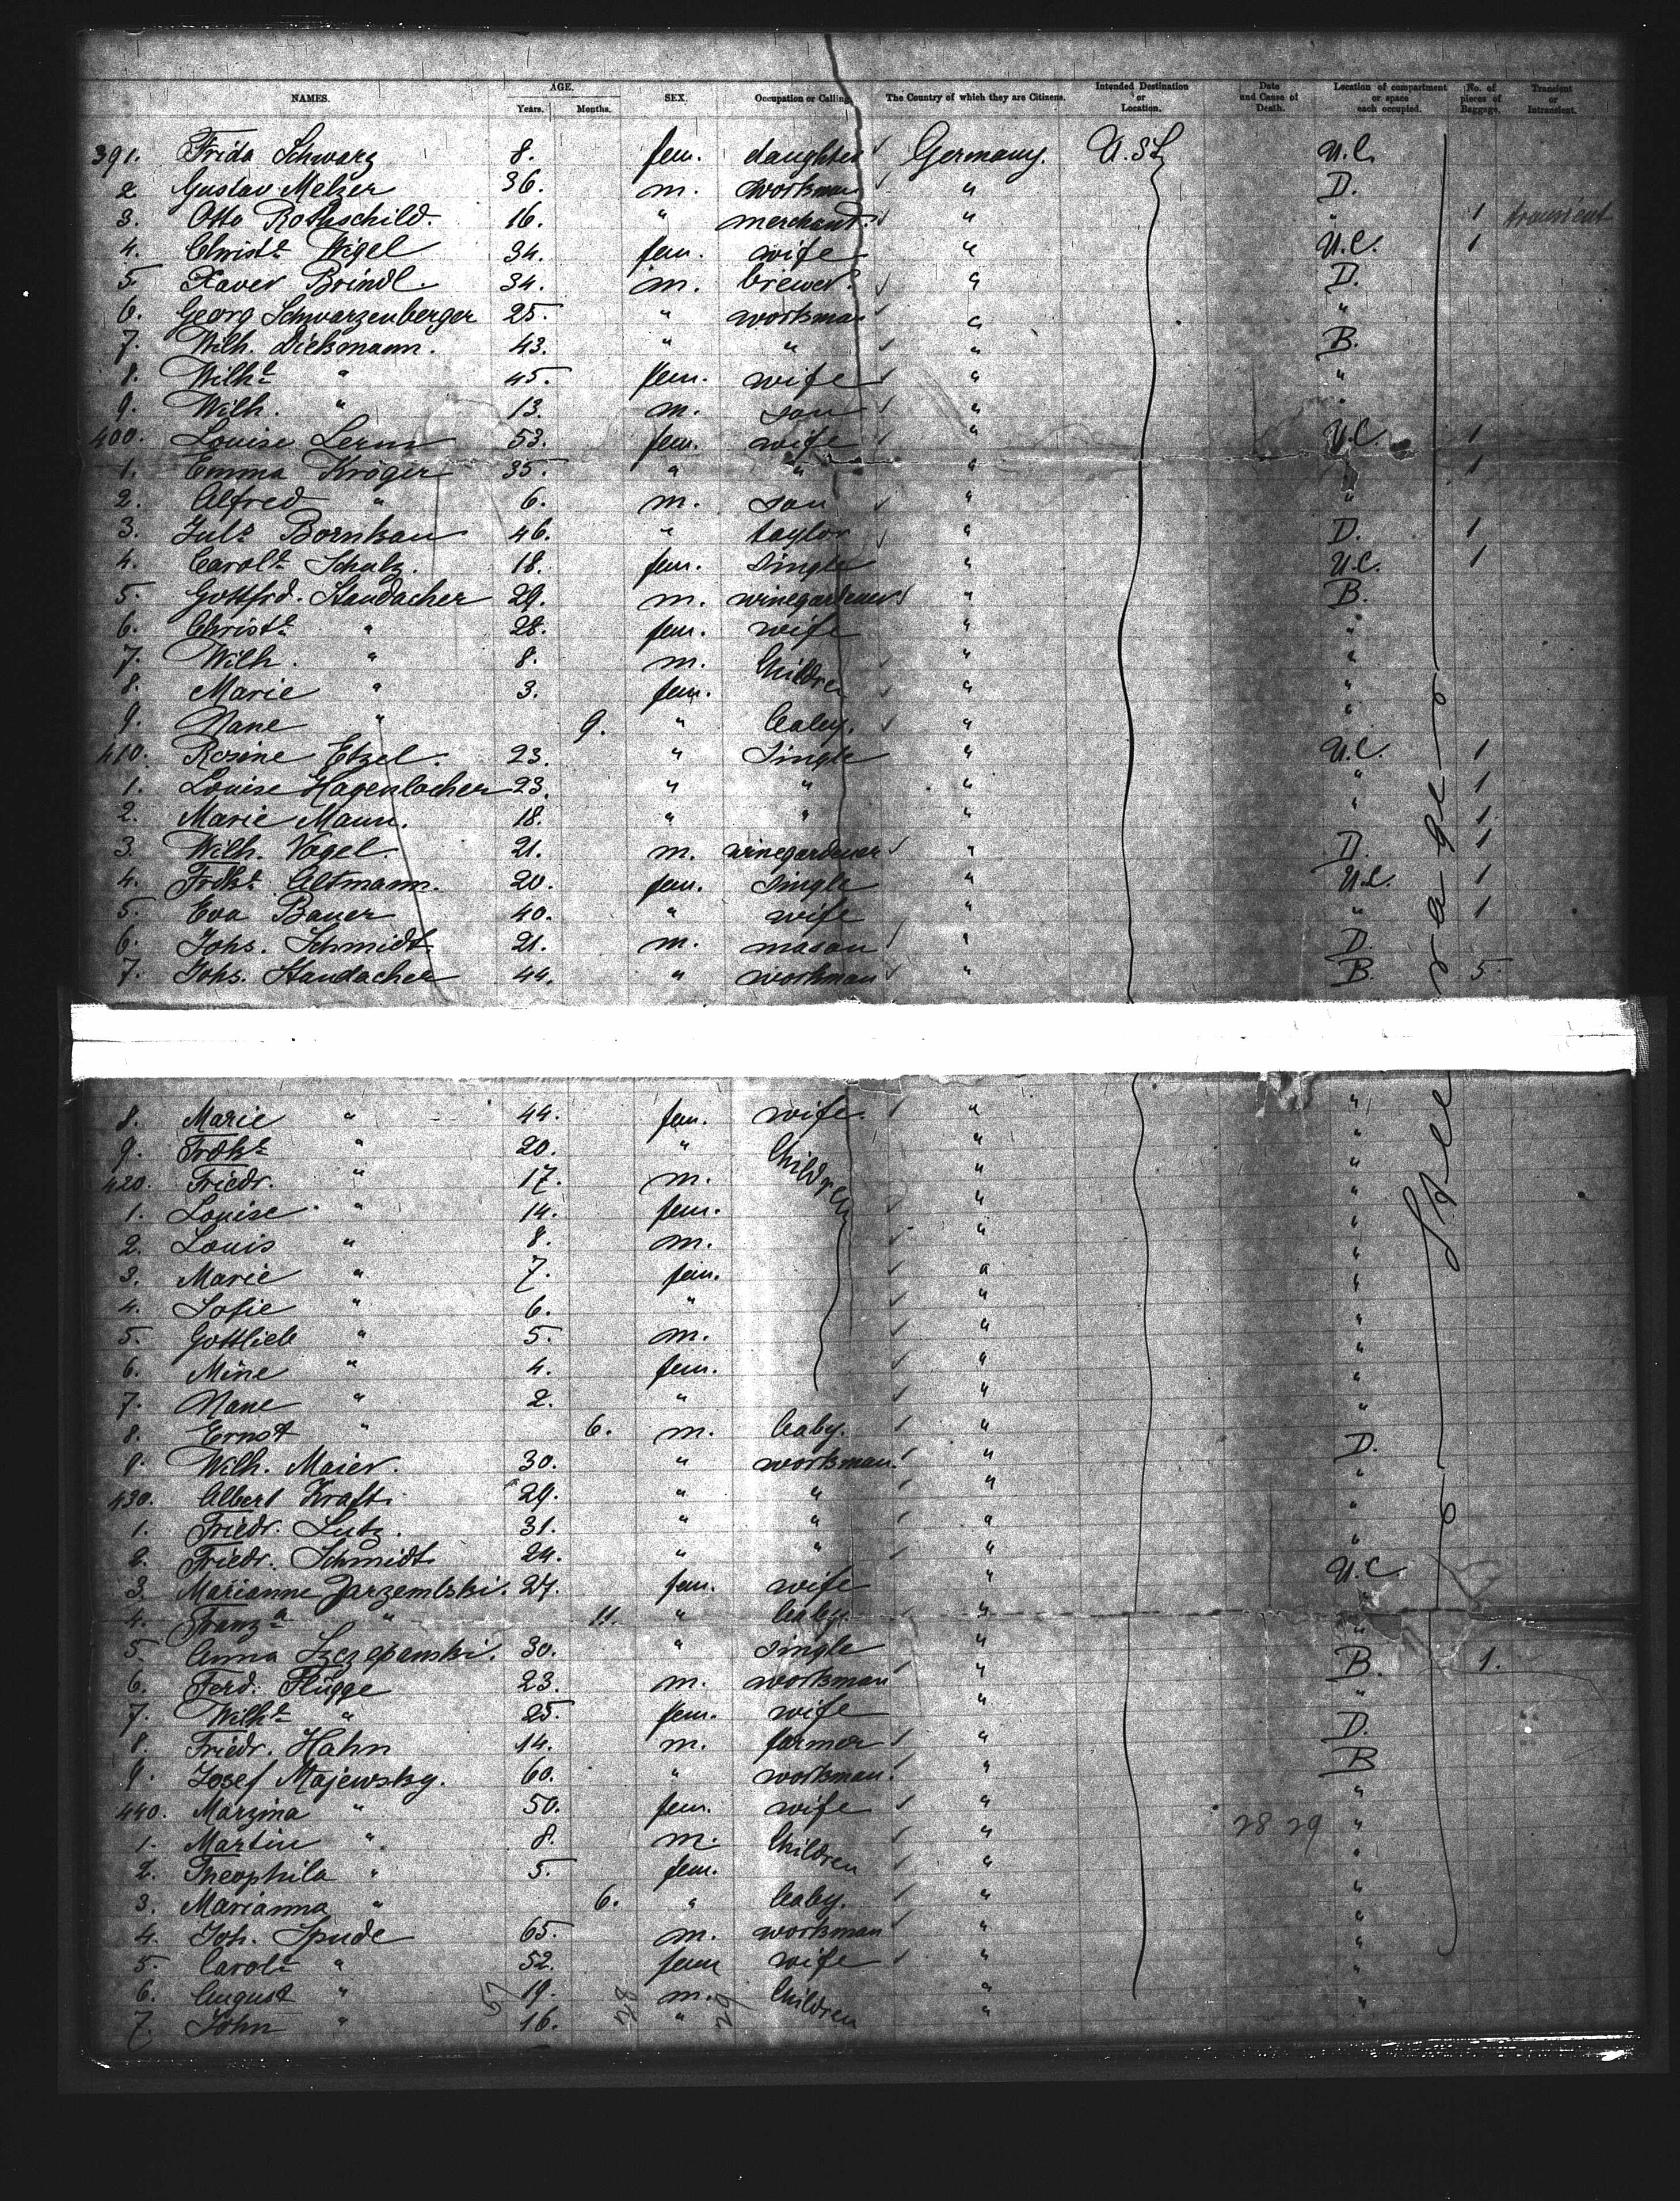 NAMES. AGE. Years. Months. SEX. Occupation or Calling The Country of which they are Citizens. Intended Destination or Location. Date and Cause of Death. Location of compartment or space each occupied. No. of pieces of Baggage. Transient or Intransient.
391. Frida Schwarz 8. fem. daughter Germany. U. St. U.C.
2 Gustav Melzer 36. m. workman " D.
3. Otto Rothschild. 16. " merchant. " " 1 transient
4. Christe Wigel 34. fem. wife " U.C. 1
5. Xaver Brindl. 34. m. brewer. " D.
6. Georg Schwarzenberger 25. " workman " "
7. Wilh. Diekmann. 43. " " " B.
8. Wilhe " 45. fem. wife " "
9. Wilh. " 13. m. son " "
400. Louise Lerm 53. fem. wife " U.C. 1
1. Emma Kröger 35. " " " 1
2. Alfred " 6. m. son " "
3. Juls Bornkau 46. " taylor " D. 1
4. Carole Schulz. 18. fem. single " U.C. 1
5. Gottfrd. Standacher 29. m. winegardener " B.
6. Christe " 28. fem. wife " "
7. Wilh. " 8. m. Children " "
8. Marie " 3. fem. " "
9. Nane " 9. " baby. " "
410. Rosine Etzel. 23. " Single " U.C. 1
1. Louise Hagenlocher 23. " " " " 1
2. Marie Mann. 18. " " " " 1.
3. Wilh. Vogel. 21. m. winegardener " D. 1
4. Frdke Altmann. 20. fem. single " U.C. 1
5. Eva Bauer 40. " wife " " 1
6. Johs. Schmidt 21. m. mason " D.
7. Johs. Standacher 44. " workman " B. 5.
8. Marie " 44. fem. wife. " "
9. Frdke " 20. " Children " "
420. Friedr. " 17. m. " "
1. Louise " 14. fem. " "
2. Louis " 8. m. " "
3. Marie " 7. fem. " "
4. Sofie " 6. " " "
5. Gottlieb " 5. m. " "
6. Mine " 4. fem. " "
7. Nane " 2. " " "
8. Ernst " 6. m. baby. " "
9. Wilh. Maier. 30. " workman. " D.
430. Albert Kraft. 29. " " " "
1. Friedr. Lutz. 31. " " " "
2. Friedr. Schmidt 24. " " " "
3. Marianne Jarzembski. 27. fem. wife " U.C.
4. Franza " 11. " baby. " "
5. Anna Szczepanski. 30. " single " "
6. Ferd. Flügge 23. m. workman " B. 1.
7. Wilhe " 25. fem. wife " "
8. Friedr. Hahn 14. m. farmer " D.
9. Josef Majewsky. 60. " workman. " B
440. Marzina " 50. fem. wife " "
1. Martin " 8. m. Children " 28 29 "
2. Theophila " 5. fem. " "
3. Marianna " 6. " baby. " "
4. Joh. Spude 65. m. workman " "
5. Carole " 52. fem wife " "
6. August " 19. m. Children " "
7. John " 16. " " "
57 28 29
Steerage